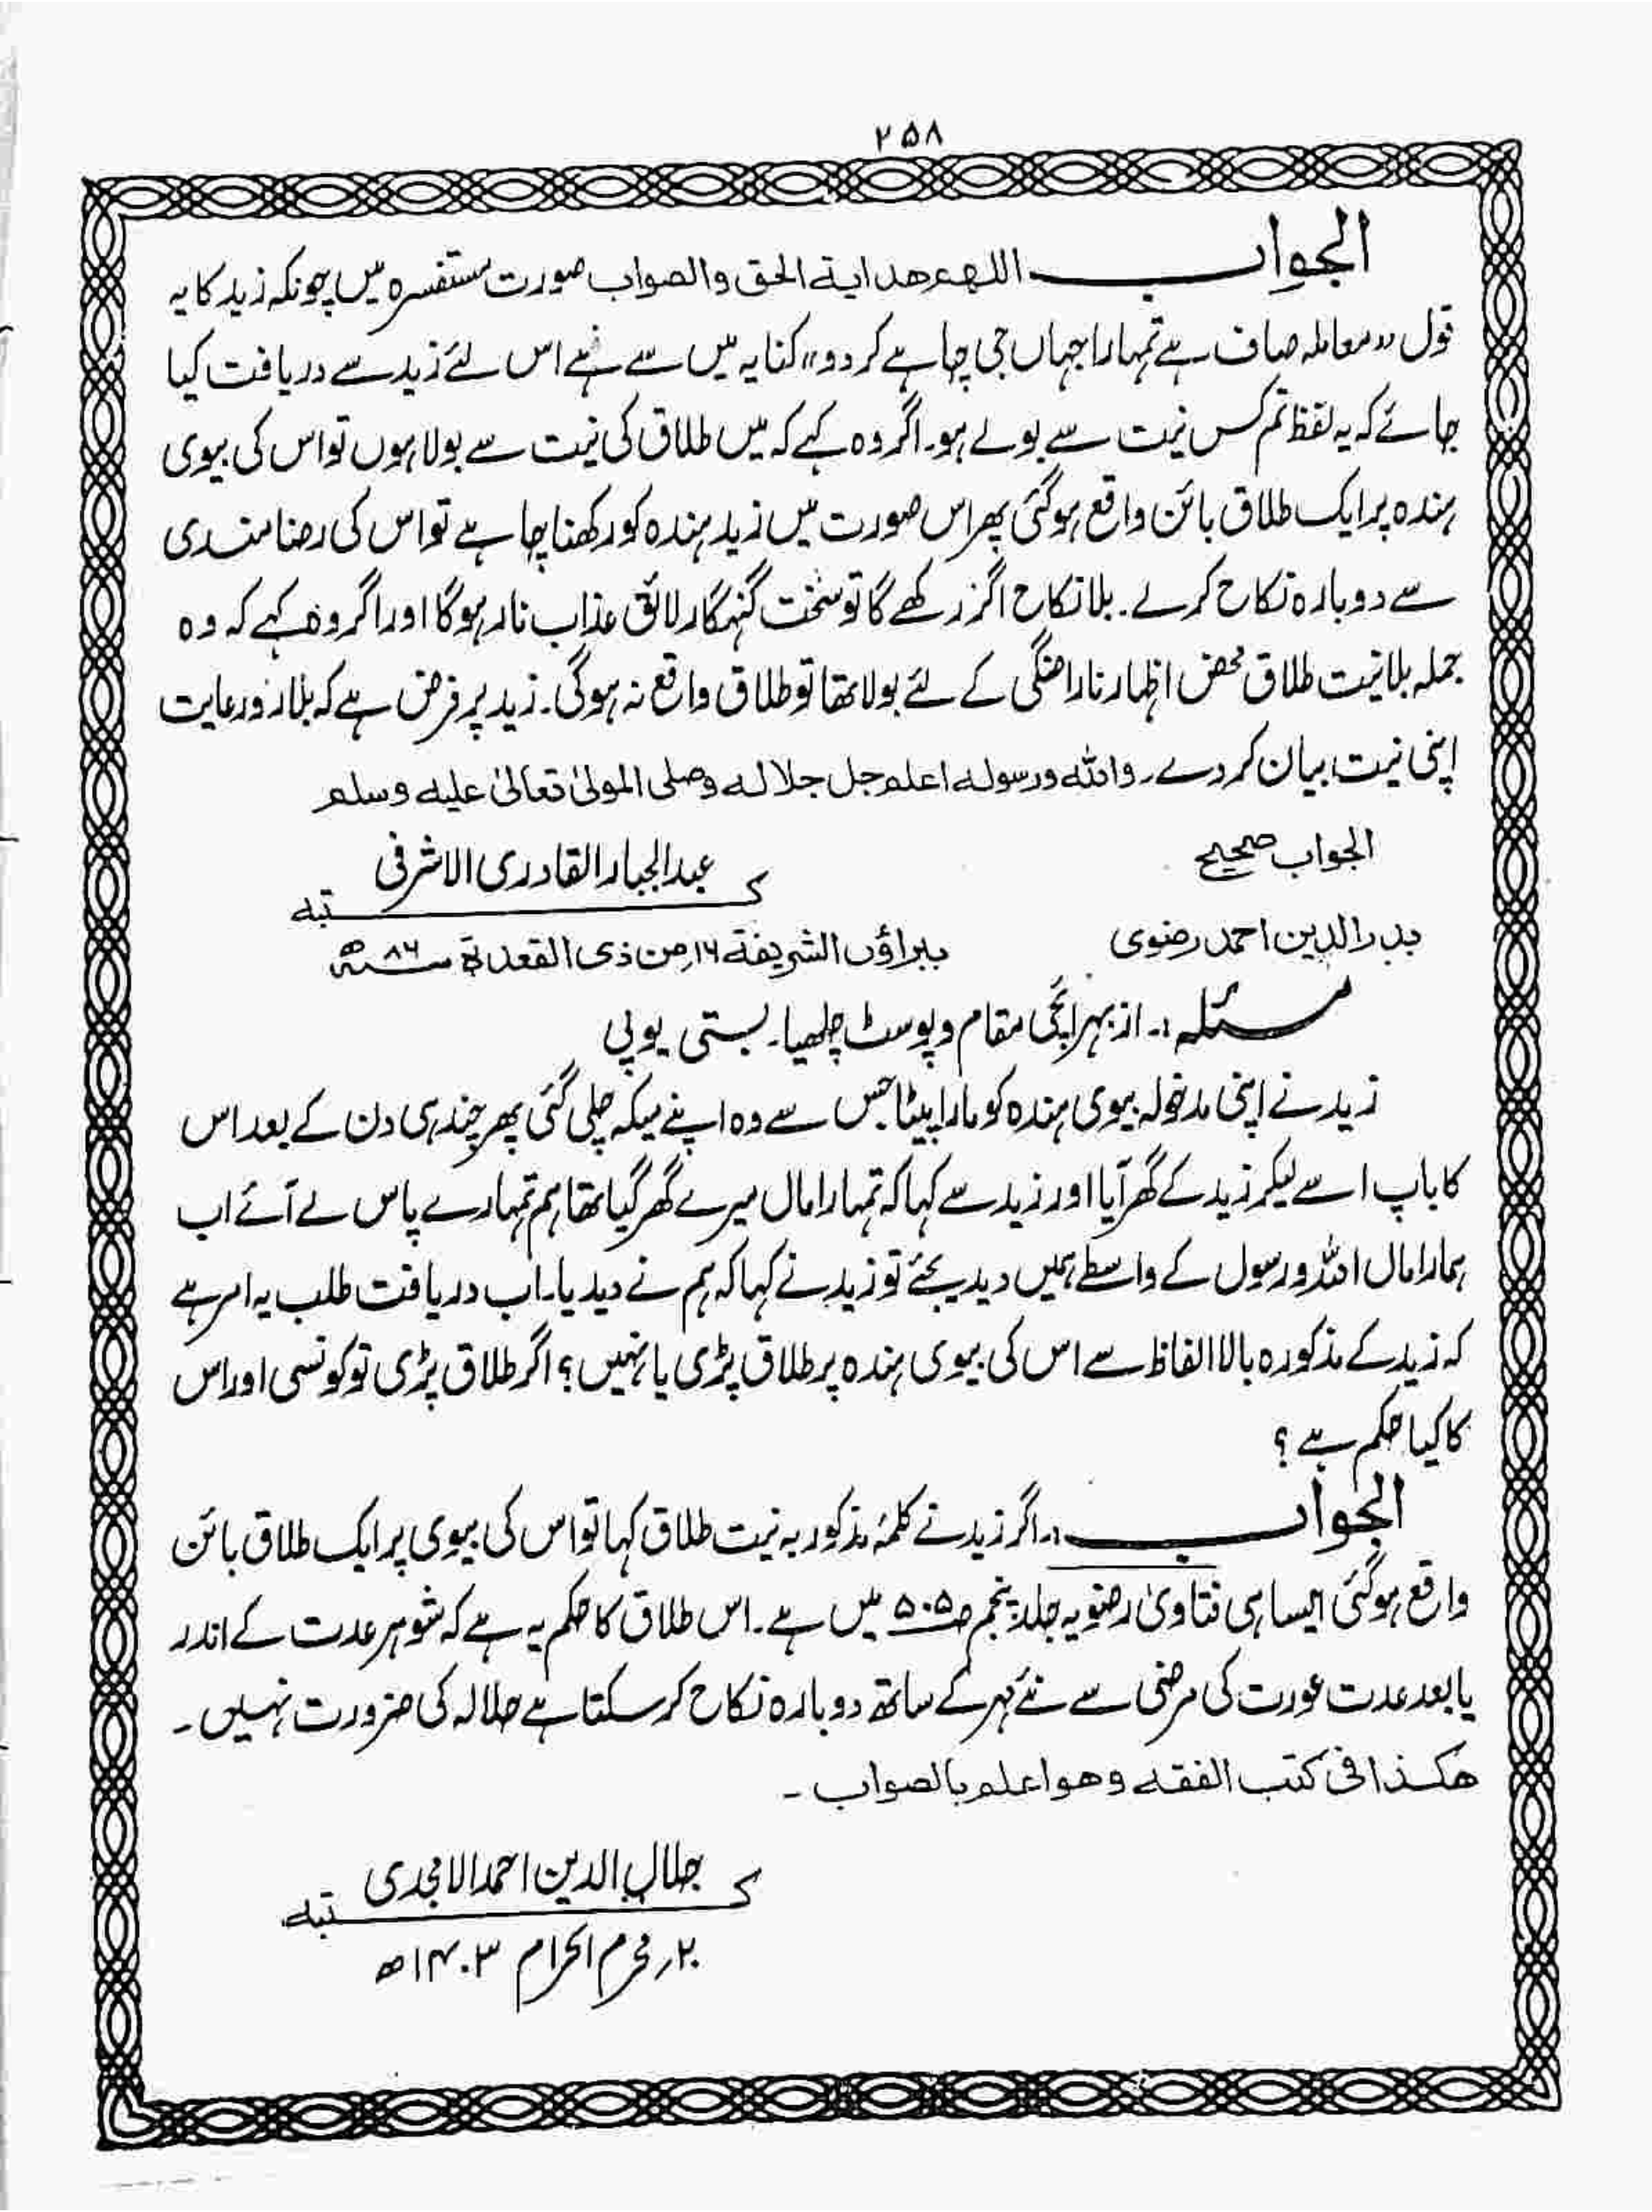 ۲۵۸
الجواب اللھم ھدایة الحق والصواب صورت مستفسرہ میں چونکہ زید کا یہ
قول ”معاملہ صاف ہے تمہارا جہاں جی چاہے کر دو“ کنایہ میں سے ہے اس لئے زید سے دریافت کیا
جائے کہ یہ لفظ تم کس نیت سے بولے ہو۔ اگر وہ کہے کہ میں طلاق کی نیت سے بولا ہوں تو اس کی بیوی
ہندہ پر ایک طلاق بائن واقع ہوگئی پھر اس صورت میں زید ہندہ کو رکھنا چاہے تو اس کی رضا مندی
سے دوبارہ نکاح کرلے۔ بلا نکاح اگر رکھے گا تو سخت گنہگار لائق عذاب نار ہوگا اور اگر وہ کہے کہ وہ
جملہ بلا نیت طلاق محض اظہار ناراضگی کے لئے بولا تھا تو طلاق واقع نہ ہوگی۔ زید پر فرض ہے کہ بلا زور عایت
اپنی نیت بیان کر دے۔ واللہ ورسولہ اعلم جل جلالہ وصلی المولیٰ تعالیٰ علیہ وسلم
الجواب صحیح
عبدالجبار القادری الاشرفی
کتبہ
بدرالدین احمد رضوی
ببراؤں الشریفة ۱۶؍من ذی القعدة سنہ ۸۶ھ
مسئلہ :۔ از بہرائچی مقام و پوسٹ چلھیا۔ بستی یوپی
زید نے اپنی مدخولہ بیوی ہندہ کو مارا پیٹا جس سے وہ اپنے میکہ چلی گئی پھر چند ہی دن کے بعد اس
کا باپ اسے لیکر زید کے گھر آیا اور زید سے کہا کہ تمہارا مال میرے گھر گیا تھا ہم تمہارے پاس لے آئے اب
ہمارا مال اللہ ورسول کے واسطے ہمیں دیدیجئے تو زید نے کہا کہ ہم نے دیدیا۔ اب دریافت طلب یہ امر ہے
کہ زید کے مذکورہ بالا الفاظ سے اس کی بیوی ہندہ پر طلاق پڑی یا نہیں؟ اگر طلاق پڑی تو کونسی اور اس
کا کیا حکم ہے؟
الجواب :۔ اگر زید نے کلمۂ مذکور بہ نیت طلاق کہا تو اس کی بیوی پر ایک طلاق بائن
واقع ہوگئی ایسا ہی فتاویٰ رضویہ جلد پنجم ص۵۰۵ میں ہے۔ اس طلاق کا حکم یہ ہے کہ شوہر عدت کے اندر
یا بعد عدت عورت کی مرضی سے نئے مہر کے ساتھ دوبارہ نکاح کر سکتا ہے حلالہ کی ضرورت نہیں۔
ھکذا فی کتب الفقہ وھو اعلم بالصواب۔
جلال الدین احمد الامجدی
کتبہ
۲۰؍محرم الحرام ۱۴۰۳ھ